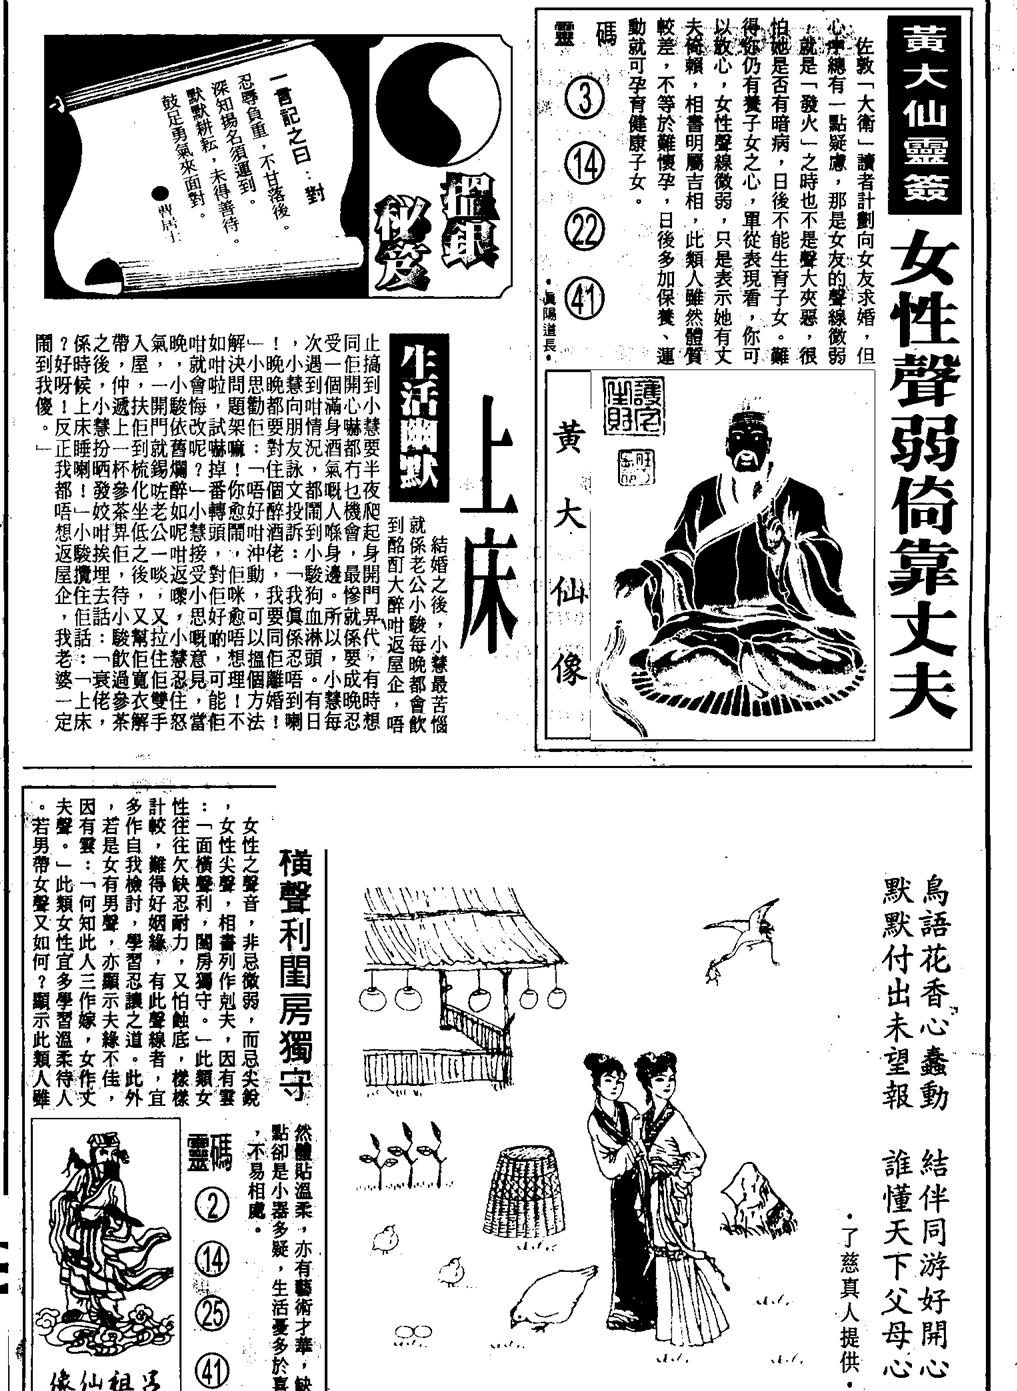 黃大仙靈簽
女性聲弱倚靠丈夫
佐敦「大衛」讀者計劃向女友求婚，但
心中總有一點疑慮，那是女友的聲線微弱
，就是「發火」之時也不是聲大夾惡，很
怕她是否有暗病，日後不能生育子女。難
得你仍有養子女之心，單從表現看，你可
以放心，女性聲線微弱，只是表示她有丈
夫倚賴，相書明屬吉相，此類人雖然體質
較差，不等於難懷孕，日後多加保養、運
動就可孕育健康子女。
•真陽道長•
靈碼
3
14
22
41
黃大仙像
搵銀
秘笈
一言記之曰：對
忍辱負重，不甘落後。
深知揚名須運到。
默默耕耘，未得善待。
鼓足勇氣來面對。
●曹居士
生活幽默
上床
結婚之後，小慧最苦惱
就係老公小駿每晚都會飲
到酩酊大醉咁返屋企，唔
止搞到小慧要半夜爬起身開門畀代，有時想
同佢開心嚇都冇乜機會，最慘就係要成晚忍
受一個滿身酒氣嘅人喺身邊。所以，小慧每
次遇到咁情況，都鬧到小駿狗血淋頭。有日
，小慧向朋友詠文投訴：「我真係忍唔到喇
！晚晚都要對住個醉酒佬，我要同佢離婚！
」小思勸佢：「唔好咁沖動，可以搵個方法
解決問題架嘛！你愈鬧，佢咪愈唔想理！不
如咁啦，試嚇掉番轉頭，對佢好啲，可能佢
咁就會悔改呢？」小慧接受小思嘅意見，當
晚，小駿依舊爛醉如呢咁返嚟，小慧忍住怒
氣，一開門就錫咗老公一啖，又拉住佢雙手
入屋，扶佢到梳化坐低之後，又幫佢寬衣解
帶，仲遞上一杯參茶畀佢，待小駿飲過參茶
之後，小慧扮晒發姣咁挨埋去話：「衰佬，
係時候上床睡喇！」小駿攬住佢話：「上床
？好呀！反正我都唔想返屋企，我老婆一定
鬧到我傻。」
鳥語花香心蠢動　結伴同游好開心
默默付出未望報　誰懂天下父母心
•了慈真人提供•
橫聲利閨房獨守
女性之聲音，非忌微弱，而忌尖銳
，女性尖聲，相書列作剋夫，因有雲
：「面橫聲利，閨房獨守。」此類女
性往往欠缺忍耐力，又怕蝕底，樣樣
計較，難得好姻緣，有此聲線者，宜
多作自我檢討，學習忍讓之道。此外
，若是女有男聲，亦顯示夫緣不佳，
因有雲：「何知此人三作嫁，女作丈
夫聲。」此類女性宜多學習溫柔待人
。若男帶女聲又如何？顯示此類人雖
然體貼溫柔，亦有藝術才華，缺
點卻是小器多疑，生活憂多於喜
，不易相處。
靈碼
2
14
25
41
呂祖仙像